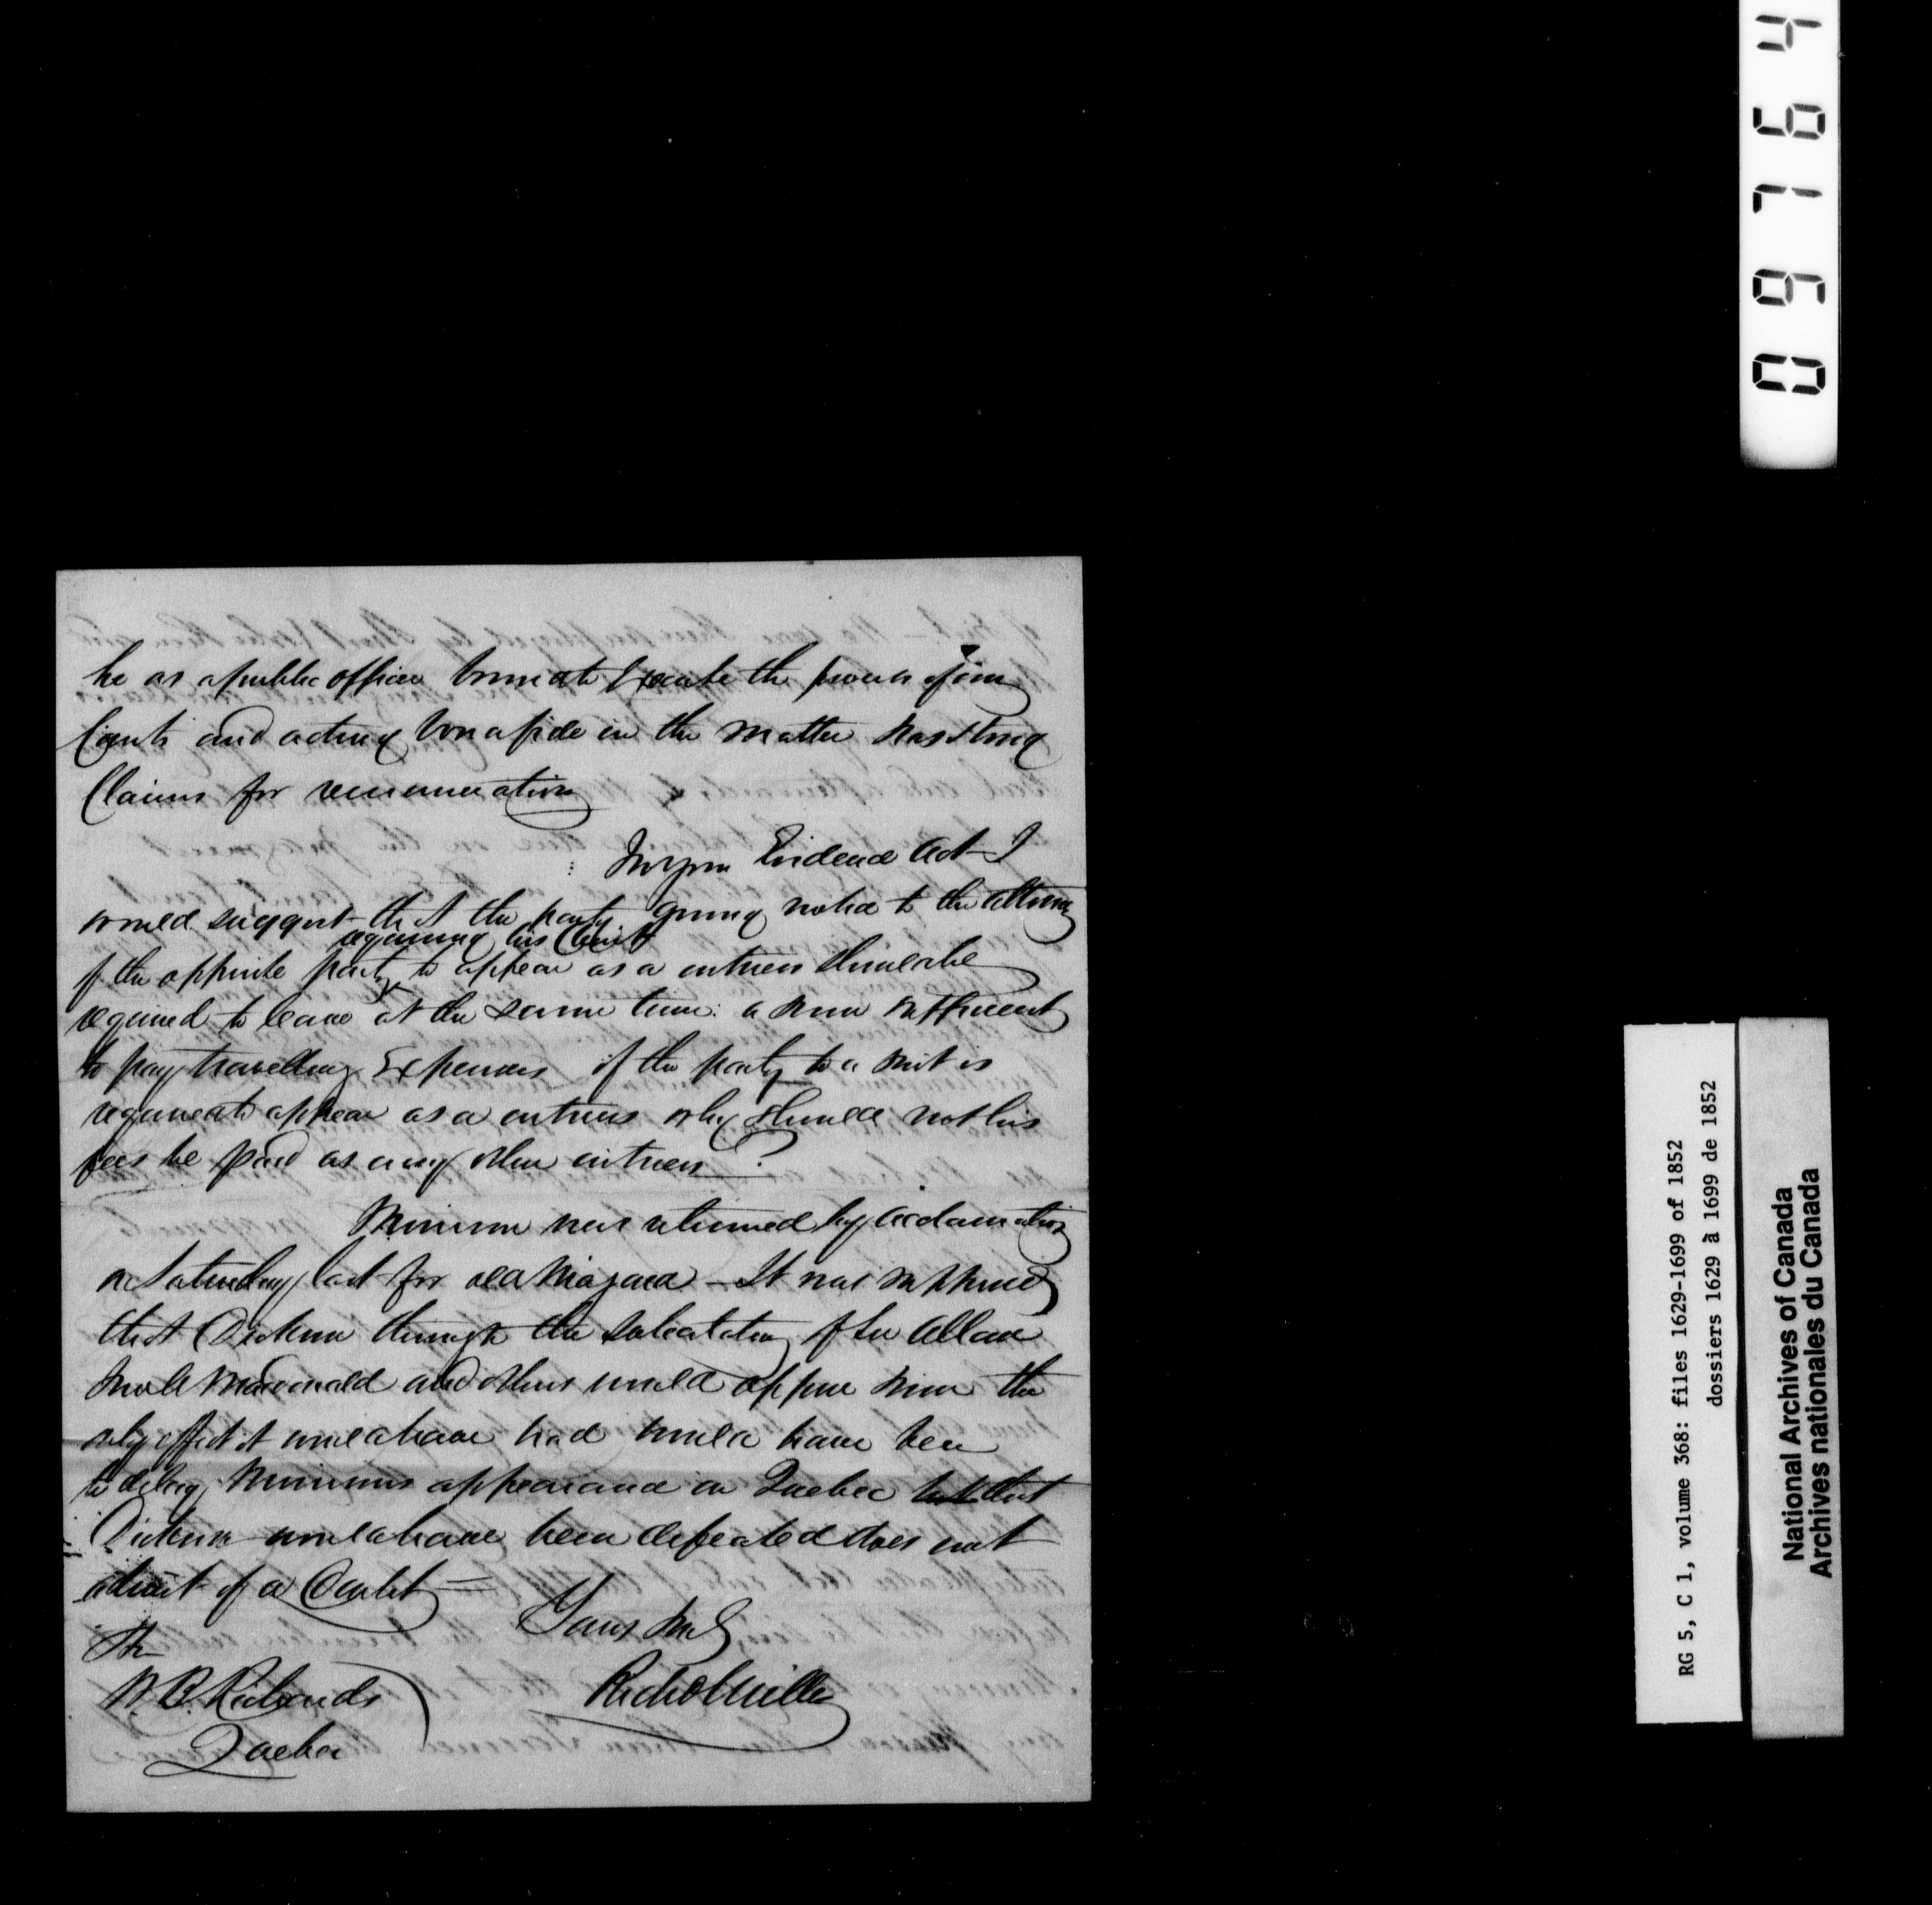 he as a public officer bound to Execute the process of our
Courts and acting bona fide in the matter has strong
Claims for remuneration
In your Evidence Act — I
would suggest that the party giving notice to the attorney
requiring his Client
of the opposite party to appear as a witness should be
required to leave at the same time a sum sufficient
to pay travelling Expenses if the party to a suit is
required to appear as a witness why should not his
fees be paid as any other witness ?
was returned by acclamation
on Saturday last for old Niagara — It was supposed
that Dickson through the solicitation of Sir Allan
Macdonald and others would oppose him the
only effect it would have had would have been
to delay appearance in Quebec but that
Dickson would have been defeated does not
admit of a Doubt —
Yours truly
The
W. B. Richards
Richd Miller
Quebec
09764
RG 5, C 1, volume 368: files 1629-1699 of 1852
dossiers 1629 à 1699 de 1852
National Archives of Canada
Archives nationales du Canada